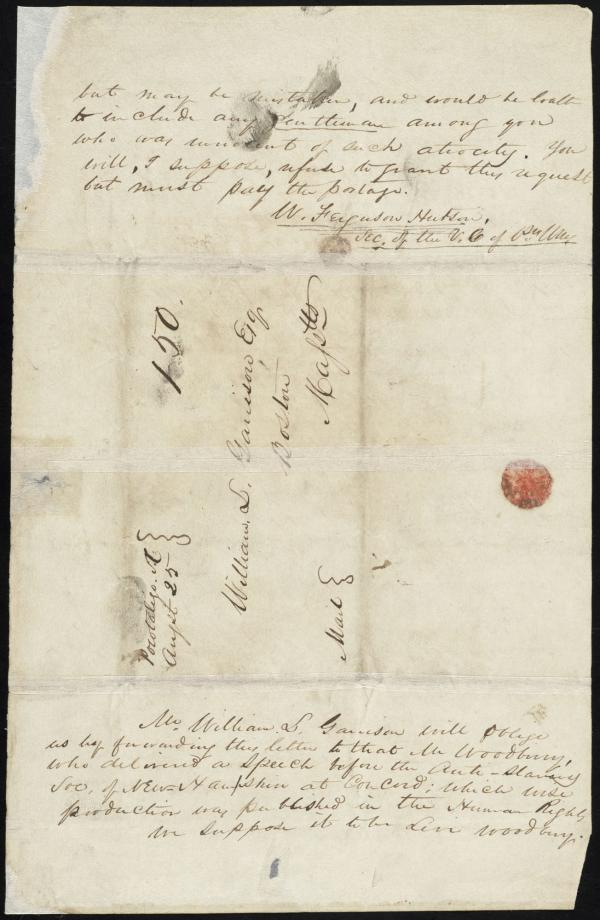 but may be mistaken, and would be loath
to include any Gentleman among you
who was innocent of such atrocity. You
will, I suppose, refuse to grant this request
but must pay the postage.
W. Ferguson Hutson,
Sec. of the V. C of Pr. Wm
150.
William. L. Garrison, Esq
Boston
Masstts
Pocotaligo.
Augst 25
Mail
Mr. William. L. Garrison will oblige
us by forwarding this letter to that Mr Woodbury,
who delivered a speech before the Anti-slavery
Soc. of New Hampshire at Concord; which wise
production was published in the Human Rights
we suppose it to be Levi Woodbury.